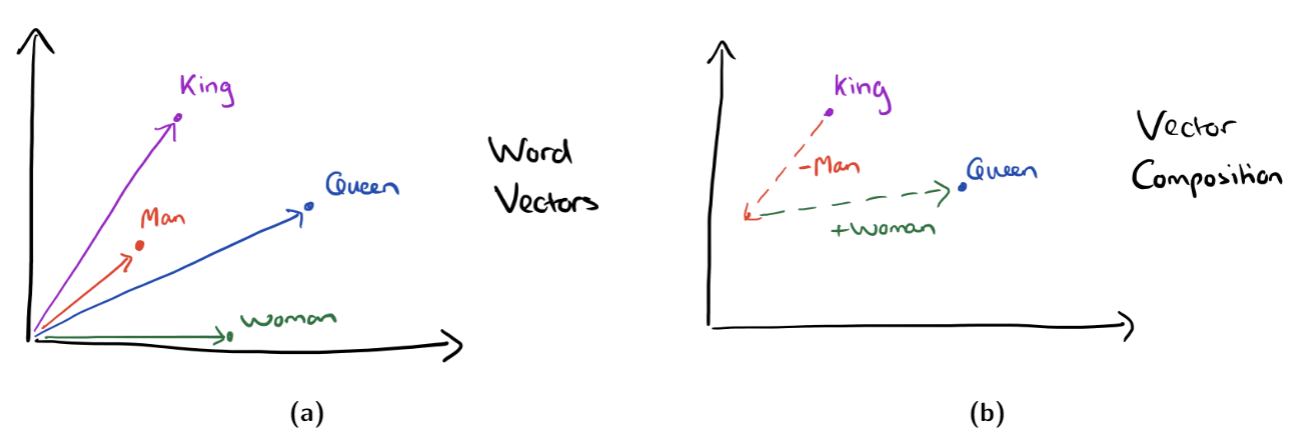 King
Queen
Man
Woman
Word
Vectors
(a)
King
-Man
Queen
+Woman
Vector
Composition
(b)